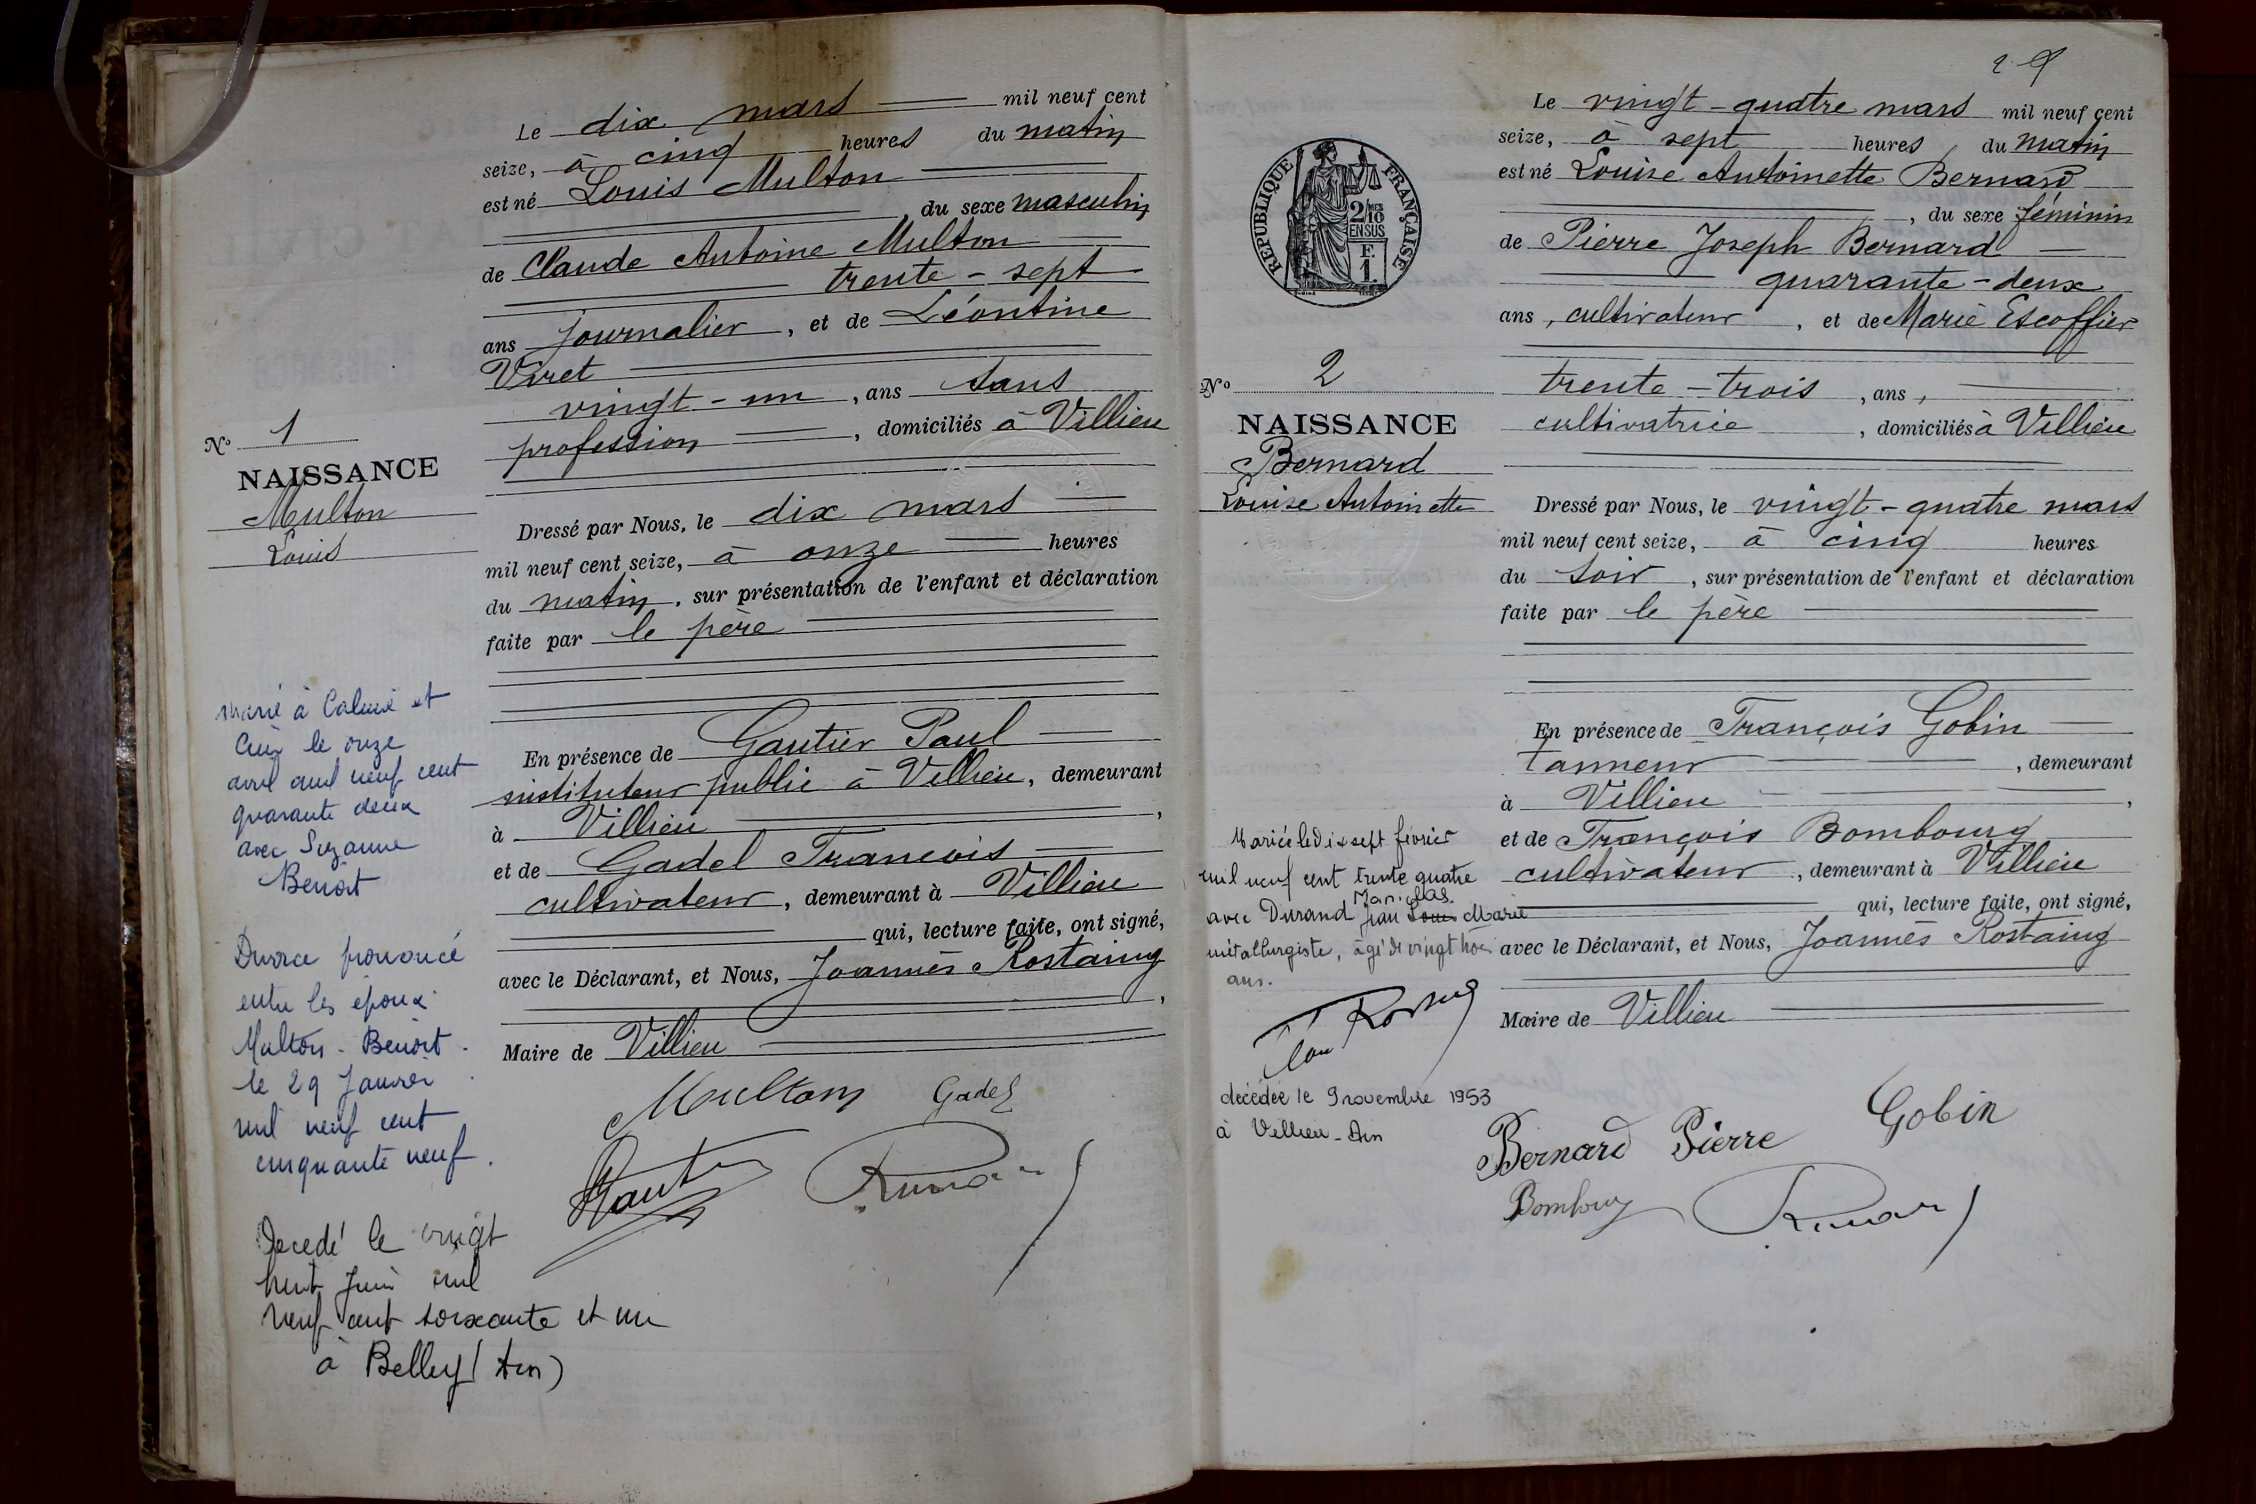 Le dix mars mil neuf cent
seize, à cinq heures du matin
est né Louis Multon
du sexe masculin
de Claude Antoine Multon
trente-sept
ans journalier, et de Léontine
Viret
vingt-un, ans sans
profession, domiciliés à Villieu
N° 1
NAISSANCE
Multon
Louis
Dressé par Nous, le dix mars
mil neuf cent seize, à onze heures
du matin, sur présentation de l'enfant et déclaration
faite par le père
En présence de Gautier Paul
instituteur public à Villieu, demeurant
à Villieu,
et de Gadel François
cultivateur, demeurant à Villieu
qui, lecture faite, ont signé,
avec le Déclarant, et Nous, Joannès Rostaing,
Maire de Villieu
Multon Gadel
marié à Caluire et
Cuire le onze
avril mil neuf cent
quarante deux
avec Suzanne
Benoit
Divorce prononcé
entre les époux
Multon - Benoit
le 29 Janvier
mil neuf cent
cinquante neuf.
Décédé le vingt
huit Juin mil
neuf cent soixante et un
à Belley (Ain)
2
REPUBLIQUE FRANÇAISE
2/10 MES
EN SUS
F.
1.
Le vingt-quatre mars mil neuf cent
seize, à sept heures du matin
est né Louise Antoinette Bernard
, du sexe féminin
de Pierre Joseph Bernard
quarante-deux
ans, cultivateur, et de Marie Escoffier
trente-trois, ans,
cultivatrice, domiciliés à Villieu
N° 2
NAISSANCE
Bernard
Louise Antoinette
Dressé par Nous, le vingt-quatre mars
mil neuf cent seize, à cinq heures
du soir, sur présentation de l'enfant et déclaration
faite par le père
En présence de François Gobin
Tanneur, demeurant
à Villieu,
et de François Bombourg
cultivateur, demeurant à Villieu
qui, lecture faite, ont signé,
avec le Déclarant, et Nous, Joannès Rostaing
Maire de Villieu
Mariée le dix sept février
mil neuf cent trente quatre
avec Durand Jean Louis Marie
métallurgiste, âgé de vingt
ans.
décédée le 9 novembre 1953
à Villieu - Ain
Bernard Pierre Gobin
Bombourg